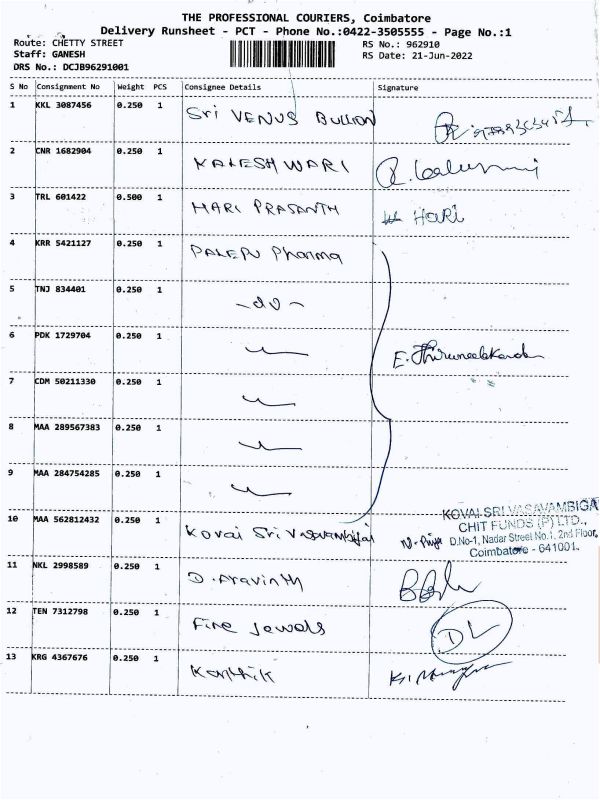 THE PROFESSIONAL COURIERS, Coimbatore
Delivery Runsheet - PCT - Phone No.:0422-3505555 - Page No.:1
Route: CHETTY STREET RS No.: 962910
Staff: GANESH RS Date: 21-Jun-2022
DRS No.: DCJB96291001
S No Consignment No Weight PCS Consignee Details Signature
1 KKL 3087456 0.250 1 Sri VENUS BULLION
2 CNR 1682904 0.250 1 KALESHWARI
3 TRL 601422 0.500 1 HARI PRASANTH HARI
4 KRR 5421127 0.250 1 PALEPU Pharma
5 TNJ 834401 0.250 1 -do-
6 PDK 1729704 0.250 1
7 CDM 50211330 0.250 1
8 MAA 289567383 0.250 1
9 MAA 284754285 0.250 1
10 MAA 562812432 0.250 1 Kovai Sri Vasavambigai N. Priya
KOVAI SRI VASAVAMBIGA
CHIT FUNDS (P) LTD.,
D.No-1, Nadar Street No.1, 2nd Floor,
Coimbatore - 641001.
11 NKL 2998589 0.250 1 D. Aravinth
12 TEN 7312798 0.250 1 Fine Jewels DL
13 KRG 4367676 0.250 1 Karthik